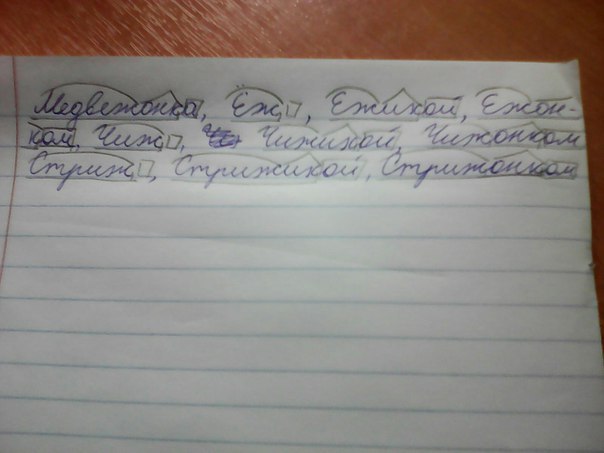 Медвежонка, Ёж, Ежихой, Ежон-
ком, Чиж, Чижихой, Чижонком
Стриж, Стрижихой, Стрижонком